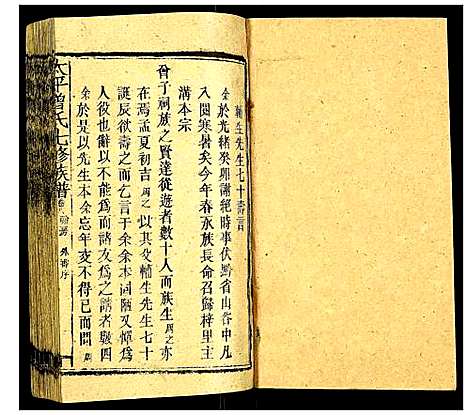 輔生先生七十壽言
余於光緒癸卯謝絕時事伏黔省山谷中凡
入閱寒暑矣今年春永族長命召歸梓里主
溝本宗
曾子祠族之賢達從遊者數十人而族生周之亦
在焉孟夏初吉周之以其父輔生先生七十
誕辰欲壽之而乞言于余余本詞陋又憚爲
人役也辭以不能爲而諸友代爲之請者數四
余於是以先生本余忘年友不得已而問
太平曾氏七修族譜 外壽序